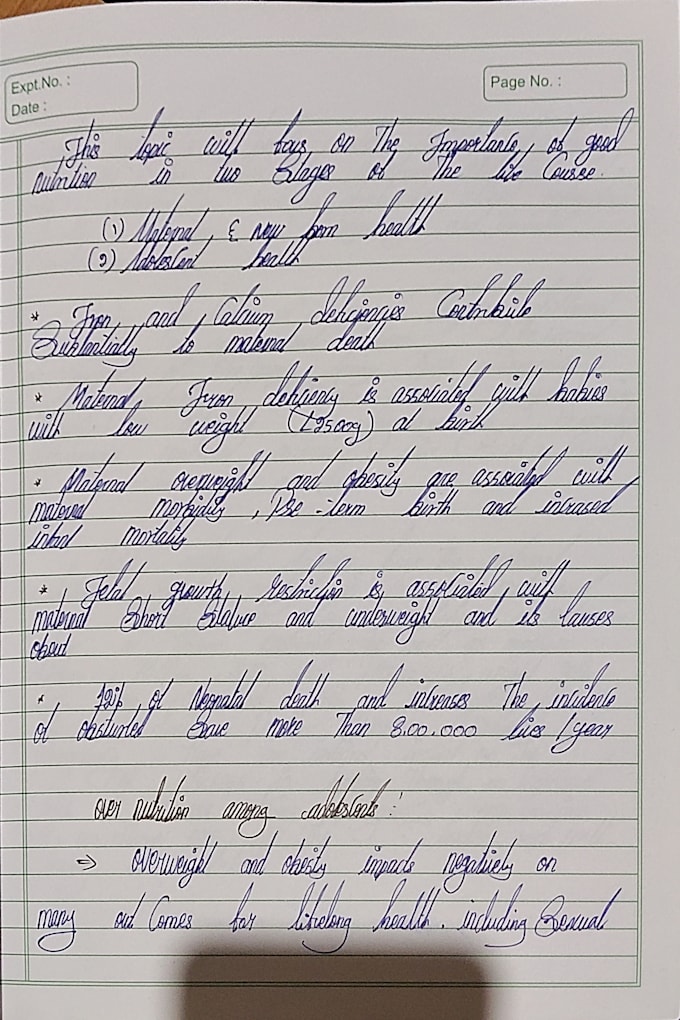 Expt.No. :
Date :
Page No. :
This topic will focus on The Importance of good
nutrition in two Stages of the life Course.
(1) Maternal & new born health
(2) Adolescent health
* Iron and Calcium deficiencies Contribute
Substantially to maternal death
* Maternal Iron deficiency is associated with babies
with low weight (<2500g) at birth
* Maternal overweight and obesity are associated with
maternal morbidity, Pre-term birth and increased
infant mortality
* Fetal growth restriction is associated with
maternal Short Stature and underweight and its causes
about
* 12% of Neonatal death and increases The incidence
of Save more Than 8,00,000 lives / year
over nutrition among adolescents :
⇒ overweight and obesity impacts negatively on
many out Comes for lifelong health. including Sexual